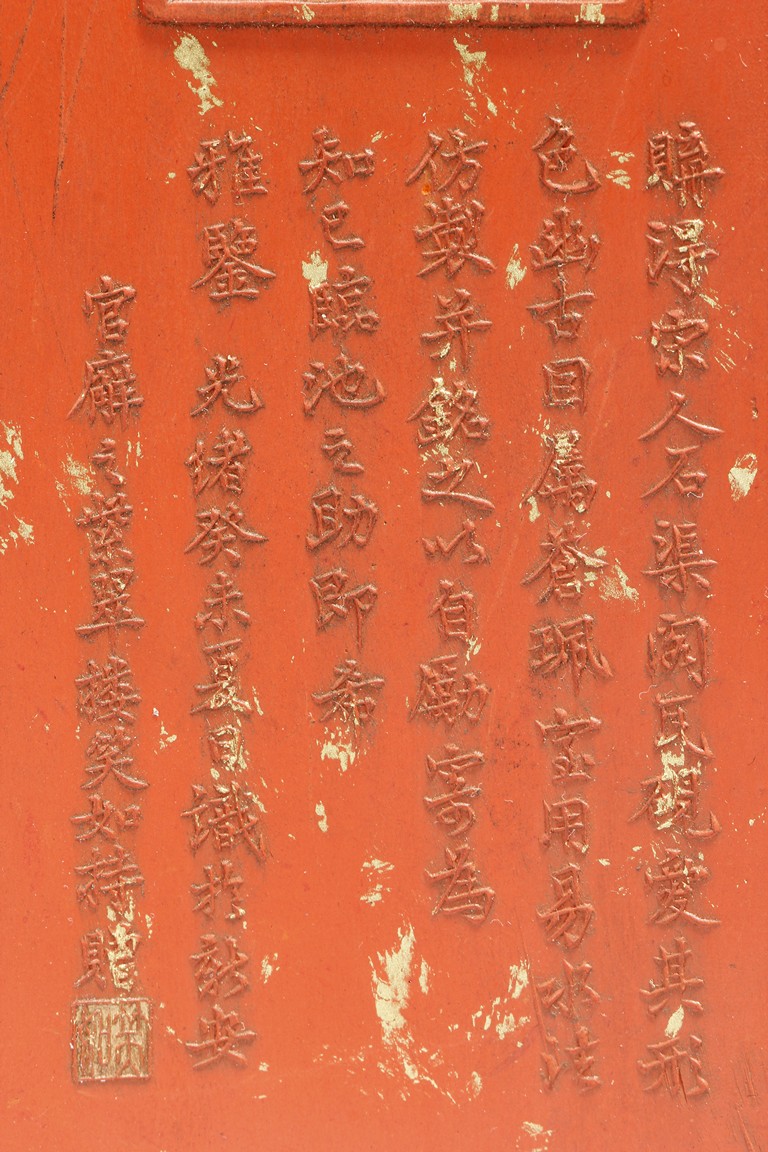 購得宋人石渠閣瓦硯愛其形
色幽古因屬蒼珮宝用易水法
仿製并銘之以自勵寄為
知己臨池之助即希
雅鑒 光緒癸未夏日識於新安
官廨之紫翠樓笑如持贈